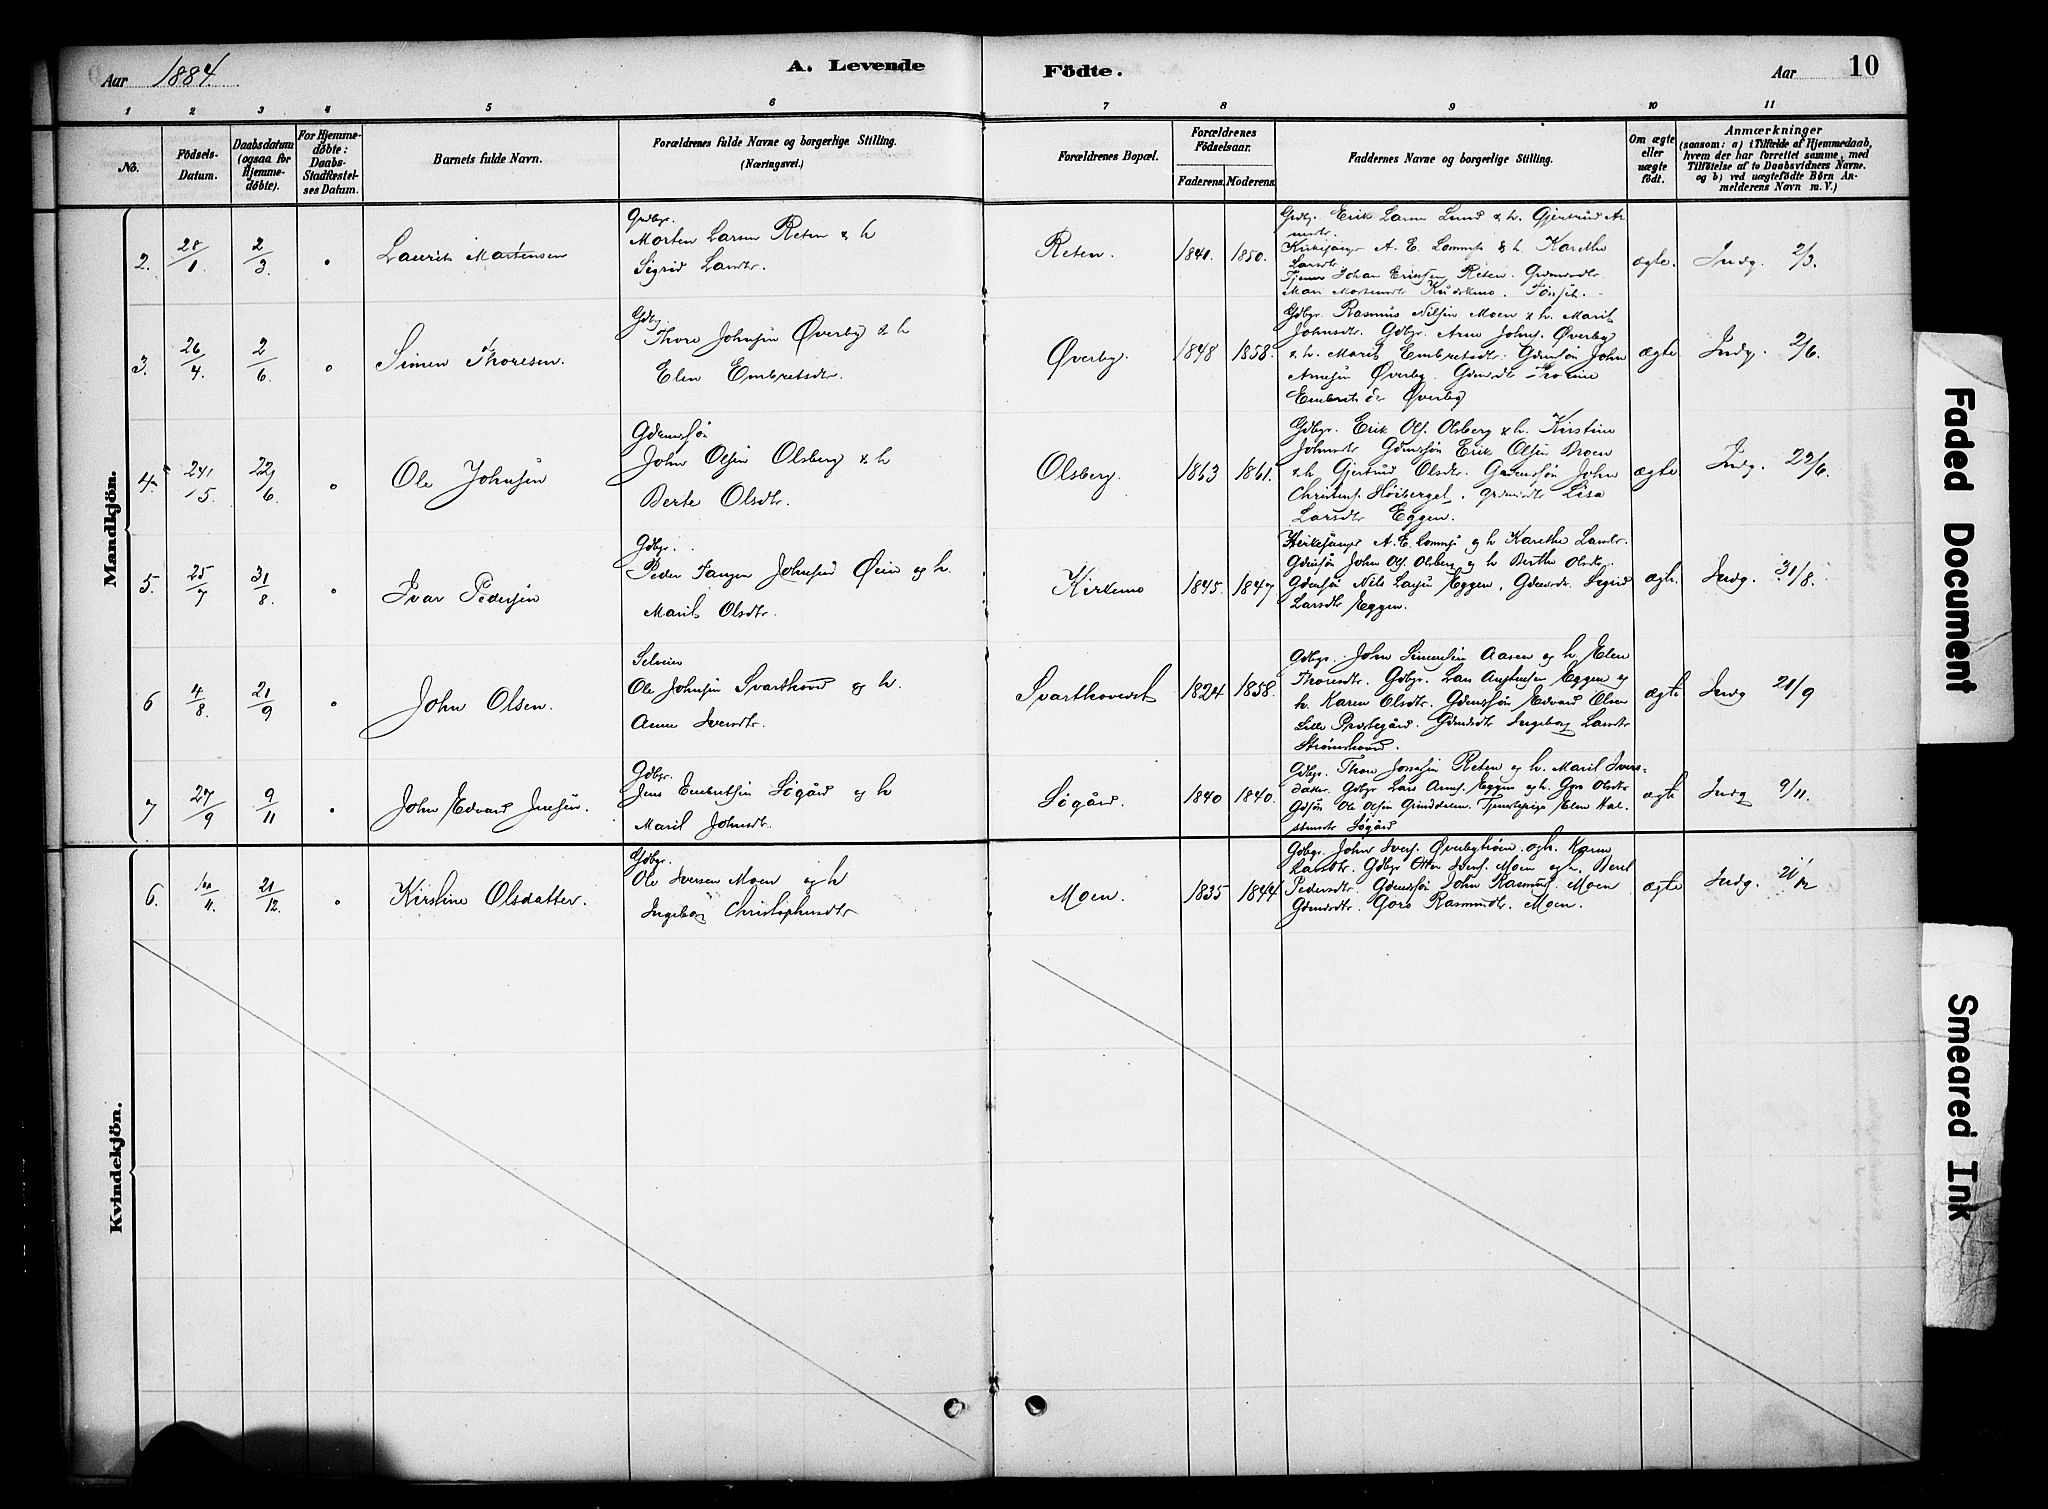 Aar 1884.
A. Levende Födte.
Aar
10
1 2 3 4 5 6 7 8 9 10 11
No.
Födsels-
Datum.
Daabsdatum
(ogsaa for
Hjemme-
döbte).
For Hjemme-
döbte:
Daabs-
Stadfæstel-
ses Datum.
Barnets fulde Navn.
Forældrenes fulde Navne og borgerlige Stilling.
(Næringsvei.)
Forældrenes Bopæl.
Forældrenes
Födselsaar.
Faderens. Moderens.
Faddernes Navne og borgerlige Stilling.
Om ægte
eller
uægte
födt.
Anmærkninger
(saasom: a) i Tilfælde af Hjemmedaab,
hvem der har forrettet samme, med
Tilföielse af to Daabsvidners Navne.
og b) ved uægtefödte Börn An-
melderens Navn m. V.)
Mandkjön.
2. 2/3 Laurits Martensen
Morten Larsen Reten & h
Sigrid Larsdtr.
Reten. 1840. 1850.
Grdbr. Erik Larsen Lund & h. Gjertrud Ar
Kirkesanger A. E. Lommsø & h. Karethe
Larsdtr.
Tjener Johan Eriksen Reten. Grdmdtr
Mari Mortensdtr Tønset.
ægte. Indg. 2/3.
3. 26/4. 2/6 Simen Thoresen.
Gdbr.
Thore Johnsen Øverby & h
Elen Embretsdtr.
Øverby. 1848 1858.
Gdbgr. Rasmus Nilsen Moen & h. Marit
Johnsdtr. Gdbgr. Arne Johns. Øverby
& h. Marit Embretsdtr. Gdmsøn John
Arnesen Øverby. Gdmdtr Thorine
Embretsdtr Øverby
ægte Indg. 2/6.
4. 24/5. 22/6 Ole Johnsen
Gdmssøn
John Olsen Olsberg & h
Berte Olsdtr.
Olsberg. 1863 1861.
Gdbgr. Erik Ols. Olsberg & h. Kirstine
Johnsdtr Gdmssøn Erik Olsen Moen
& h. Gjertrud Olsdtr. Gdmssøn John
Christens. Høiberget, Grdmdtr Lisa
Larsdtr Eggen.
ægte Indg. 22/6.
5. 25/7 31/8. Ivar Pedersen
Gdbgr.
Peder Tangen Johnsen Øien og h.
Marit Olsdtr.
Kirkemo 1845. 1847
Kirkesanger A. E. Lommsø og h Karethe Larsdtr.
Gdmsøn John Ols. Olsberg og h Berthe Olsdtr.
Gdmsøn Nils Larsen Eggen, Gdmsdtr. Sigrid
Larsdtr Eggen.
ægte. Indg. 31/8.
6 4/8. 21/9 John Olsen.
Selveier
Ole Johnsen Svarthovd og h.
Anne Iversdtr.
Svarthovedet 1824 1858.
Gdbgr. John Simensen Aasen og h. Elen
Thoresdtr. Gdbgr. Lars Eggen og
h. Karen Olsdtr. Gdmssøn Edvard Olsen
Lille Prestegård. Gdmsdtr Ingeborg Larsdtr
Strømshovd.
ægte Indg 21/9
7 27/9 9/11 John Edvard Jensen.
Gdbgr.
Jens Embretsen Søgård og h
Marit Johnsdtr.
Søgård. 1840 1840.
Gdbgr. Thore Jonsen Reten og h. Marit Ivers-
datter. Gdbgr Lars Arns. Eggen og h. Goro Olsdtr
Gdsøn Ole Olsen Tjenestepige Elen Hal-
stensdtr Søgård
ægte Indg 9/11.
Kvindekjön.
6. 11. 21/12. Kirstine Olsdatter.
Gdbgr.
Ole Iversen Moen og h
Ingeborg Christophersdtr
Moen. 1835 1844
Gdbgr. John Ivers. Øverbytrøen og h. Karen
Larsdtr. Gdbgr Otto Ivers. Moen og h. Beret
Pedersdtr. Gdmssøn John Rasmus. Moen
Gdmsdtr. Goro Rasmusdtr. Moen.
ægte Indg. 21/12
Faded Document
Smeared Ink